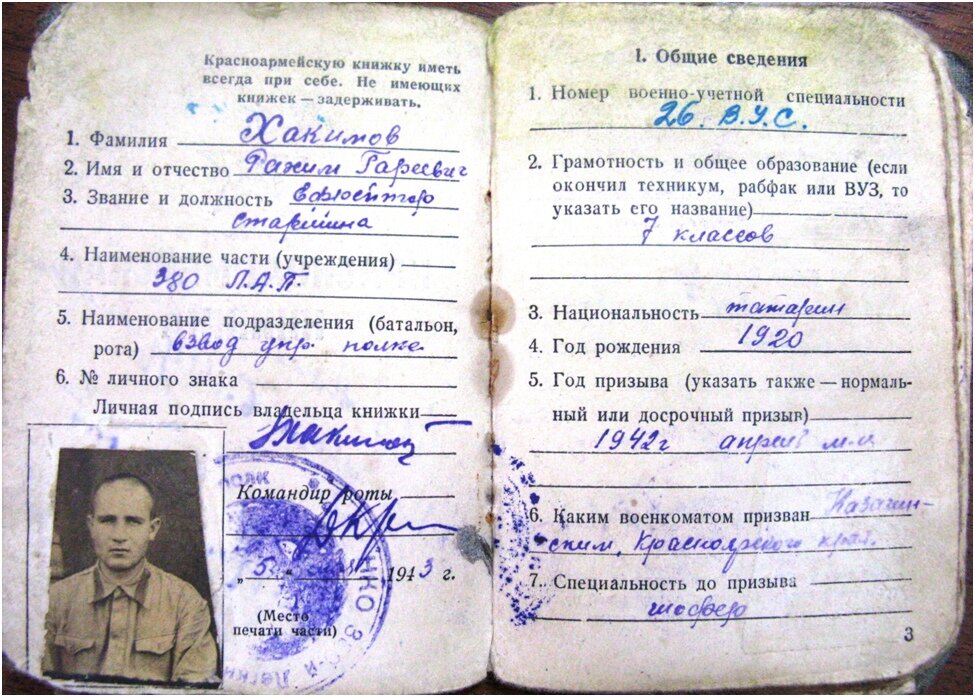 Красноармейскую книжку иметь
всегда при себе. Не имеющих
книжек — задерживать.
1. Фамилия Хакимов
2. Имя и отчество Рахим Гареевич
3. Звание и должность Ефрейтор
старшина
4. Наименование части (учреждения)
380 Л.А.П.
5. Наименование подразделения (батальон,
рота) взвод упр. полка
6. № личного знака
Личная подпись владельца книжки
Командир роты
„5“ 1943 г.
(Место
печати части)
I. Общие сведения
1. Номер военно-учетной специальности
26. В.У.С.
2. Грамотность и общее образование (если
окончил техникум, рабфак или ВУЗ, то
указать его название)
7 классов
3. Национальность татарин
4. Год рождения 1920
5. Год призыва (указать также — нормаль-
ный или досрочный призыв)
1942г апрель м-ц
6. Каким военкоматом призван Казачин-
ским, Красноярского края.
7. Специальность до призыва
шофер
3